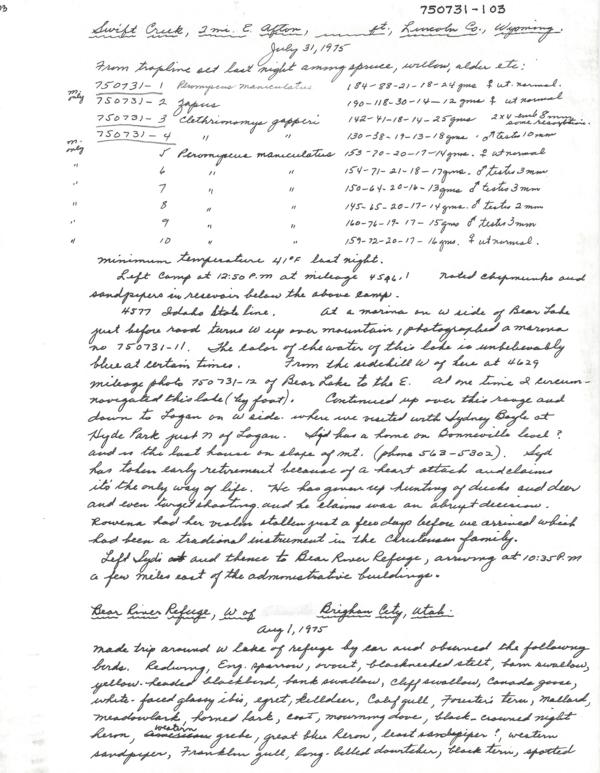 03
750731-103
Swift Creek, 2 mi. E. Afton, ft., Lincoln Co., Wyoming.
July 31, 1975
From trapline set last night among spruce, willow, alder etc:
750731-1 Peromyscus maniculatus 184-88-21-18-24gms ♀ ut. normal.
only 750731-2 Zapus 190-118-30-14-12gms ♀ ut normal
750731-3 Clethrionomys gapperi 142-41-18-14-25gms 2x4 emb 8mm some resorption.
only 750731-4 130-38-19-13-18gms. ♂ testis 10mm
" 5 Peromyscus maniculatus 153-70-20-17-14gms. ♀ ut normal
" 6 " " 154-71-21-18-17gms. ♂ testis 3mm
" 7 " " 150-64-20-16-13gms ♂ testis 3mm
" 8 " " 145-65-20-17-14gms. ♂ testis 2mm
" 9 " " 160-76-19-17-15gms ♂ testis 3mm
" 10 " " 159-72-20-17-16gms. ♀ ut normal.
minimum temperature 41°F last night.
Left Camp at 12:50 P.M at mileage 4546.1 noted chipmunks and
sandpipers in resevoir below the above camp.
4577 Idaho State line. At a marina on W side of Bear Lake
just before road turns W up over mountain, photographed a marina
no 750731-11. The color of the water of this lake is unbelievably
blue at certain times. From the sidehill W of here at 4629
mileage photo 750731-12 of Bear Lake to the E. At one time I circum-
navigated this lake (by foot). Continued up over this range and
down to Logan on W side. where we visited with Sydney Boyle at
Hyde Park just N of Logan. Syd has a home on Bonneville level?
and is the last house on slope of mt. (phone 563-5302). Syd
has taken early retirement because of a heart attack and claims
it's the only way of life. He has given up hunting of ducks and deer
and even target shooting, and he claims was an abrupt decision.
Rowena had her violin stollen just a few days before we arrived which
had been a tradional instrument in the Christensen family.
Left Syd's and thence to Bear River Refuge, arriving at 10:35 P.M
a few miles east of the administrative buildings.
Bear River Refuge, W of Brigham City, Utah.
Aug 1, 1975
Made trip around W lake of refuge by car and observed the following
birds. Redwing, Eng. sparrow, avocet, blacknecked stilt, barn swallow,
yellow-headed blackbird, bank swallow, Cliff swallow, Canada goose,
white-faced glossy ibis, egret, killdeer, Calif gull, Forster's tern, mallard,
meadowlark, horned lark, coot, mourning dove, black-crowned night
heron, western grebe, great blue Heron, least sandpiper?, western
sandpiper, Franklin gull, long-billed dowitcher, black tern, spotted